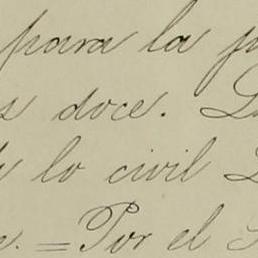 para la
doce.
lo civil
Por el